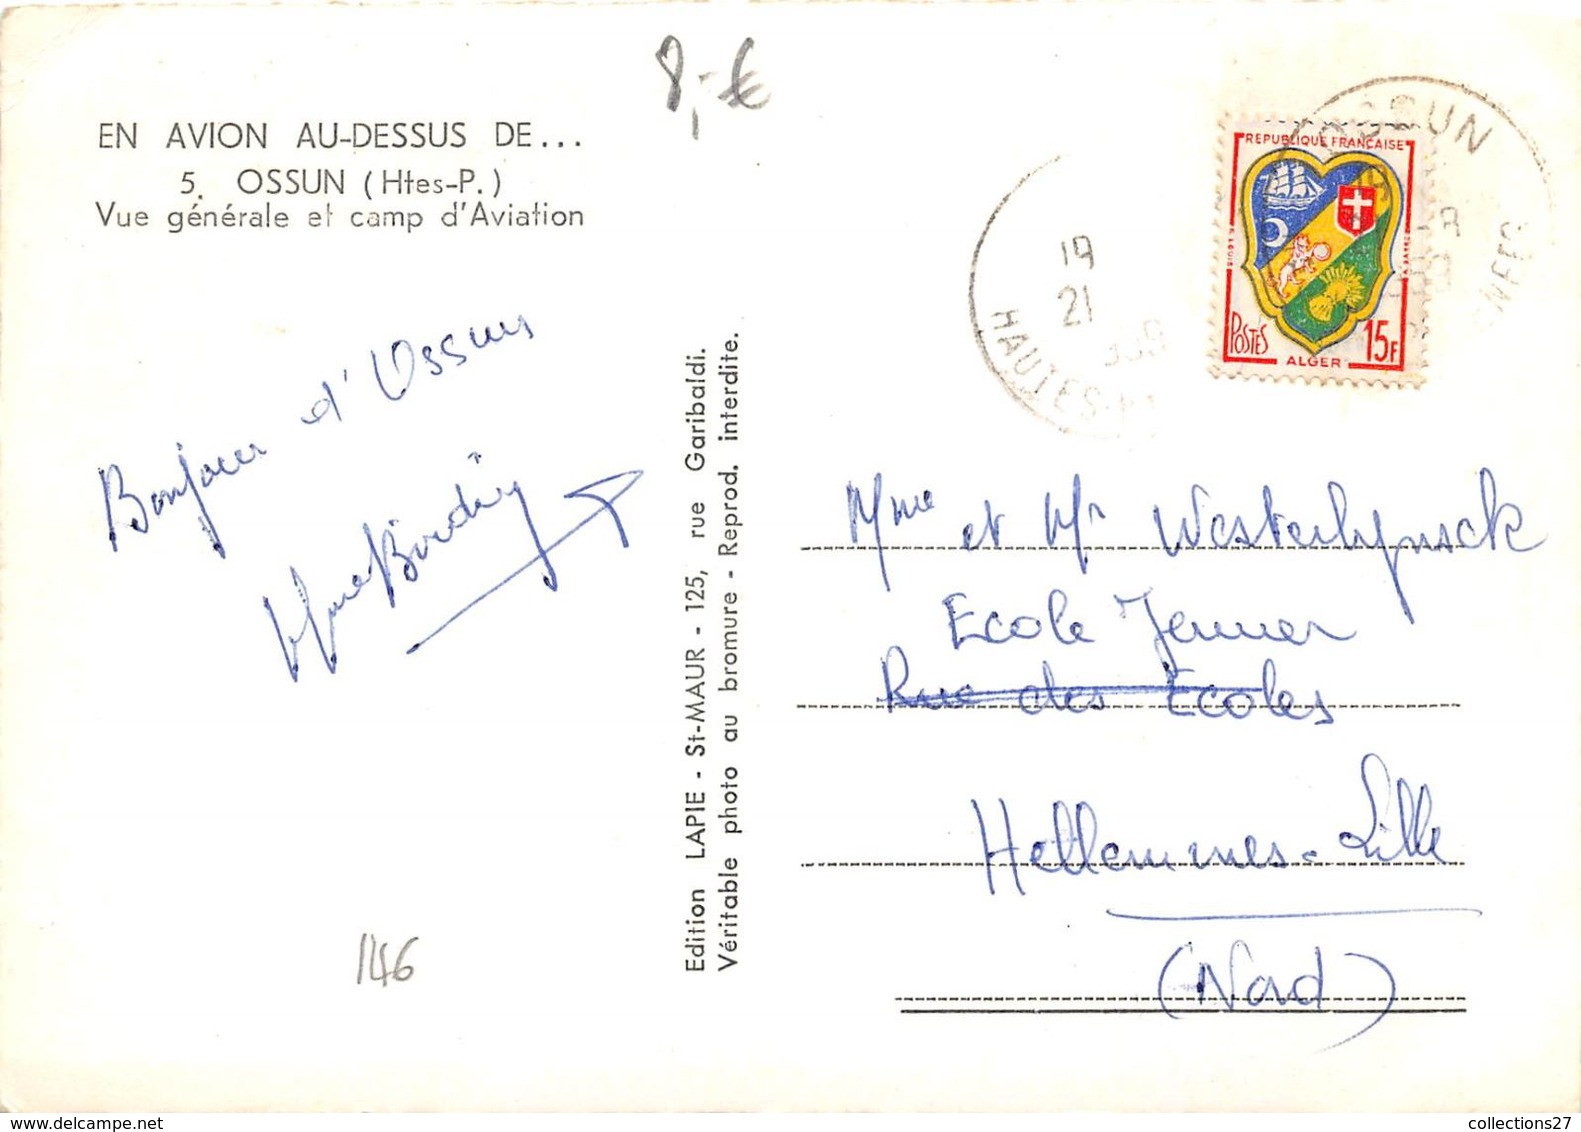 8,-€
EN AVION AU-DESSUS DE...
5. OSSUN (Htes-P.)
Vue générale et camp d'Aviation
Bonjour d'Ossun
Mme
Edition LAPIE - St-MAUR - 125, rue Garibaldi.
Véritable photo au bromure - Reprod. interdite.
OSSUN
19
21
HAUTES-P
REPUBLIQUE FRANÇAISE
POSTES
ALGER
15F
Mme et Mr Westerlynck
Ecole Jenner
Rue des Ecoles
Hellemmes-Lille
(Nord)
146
collections27